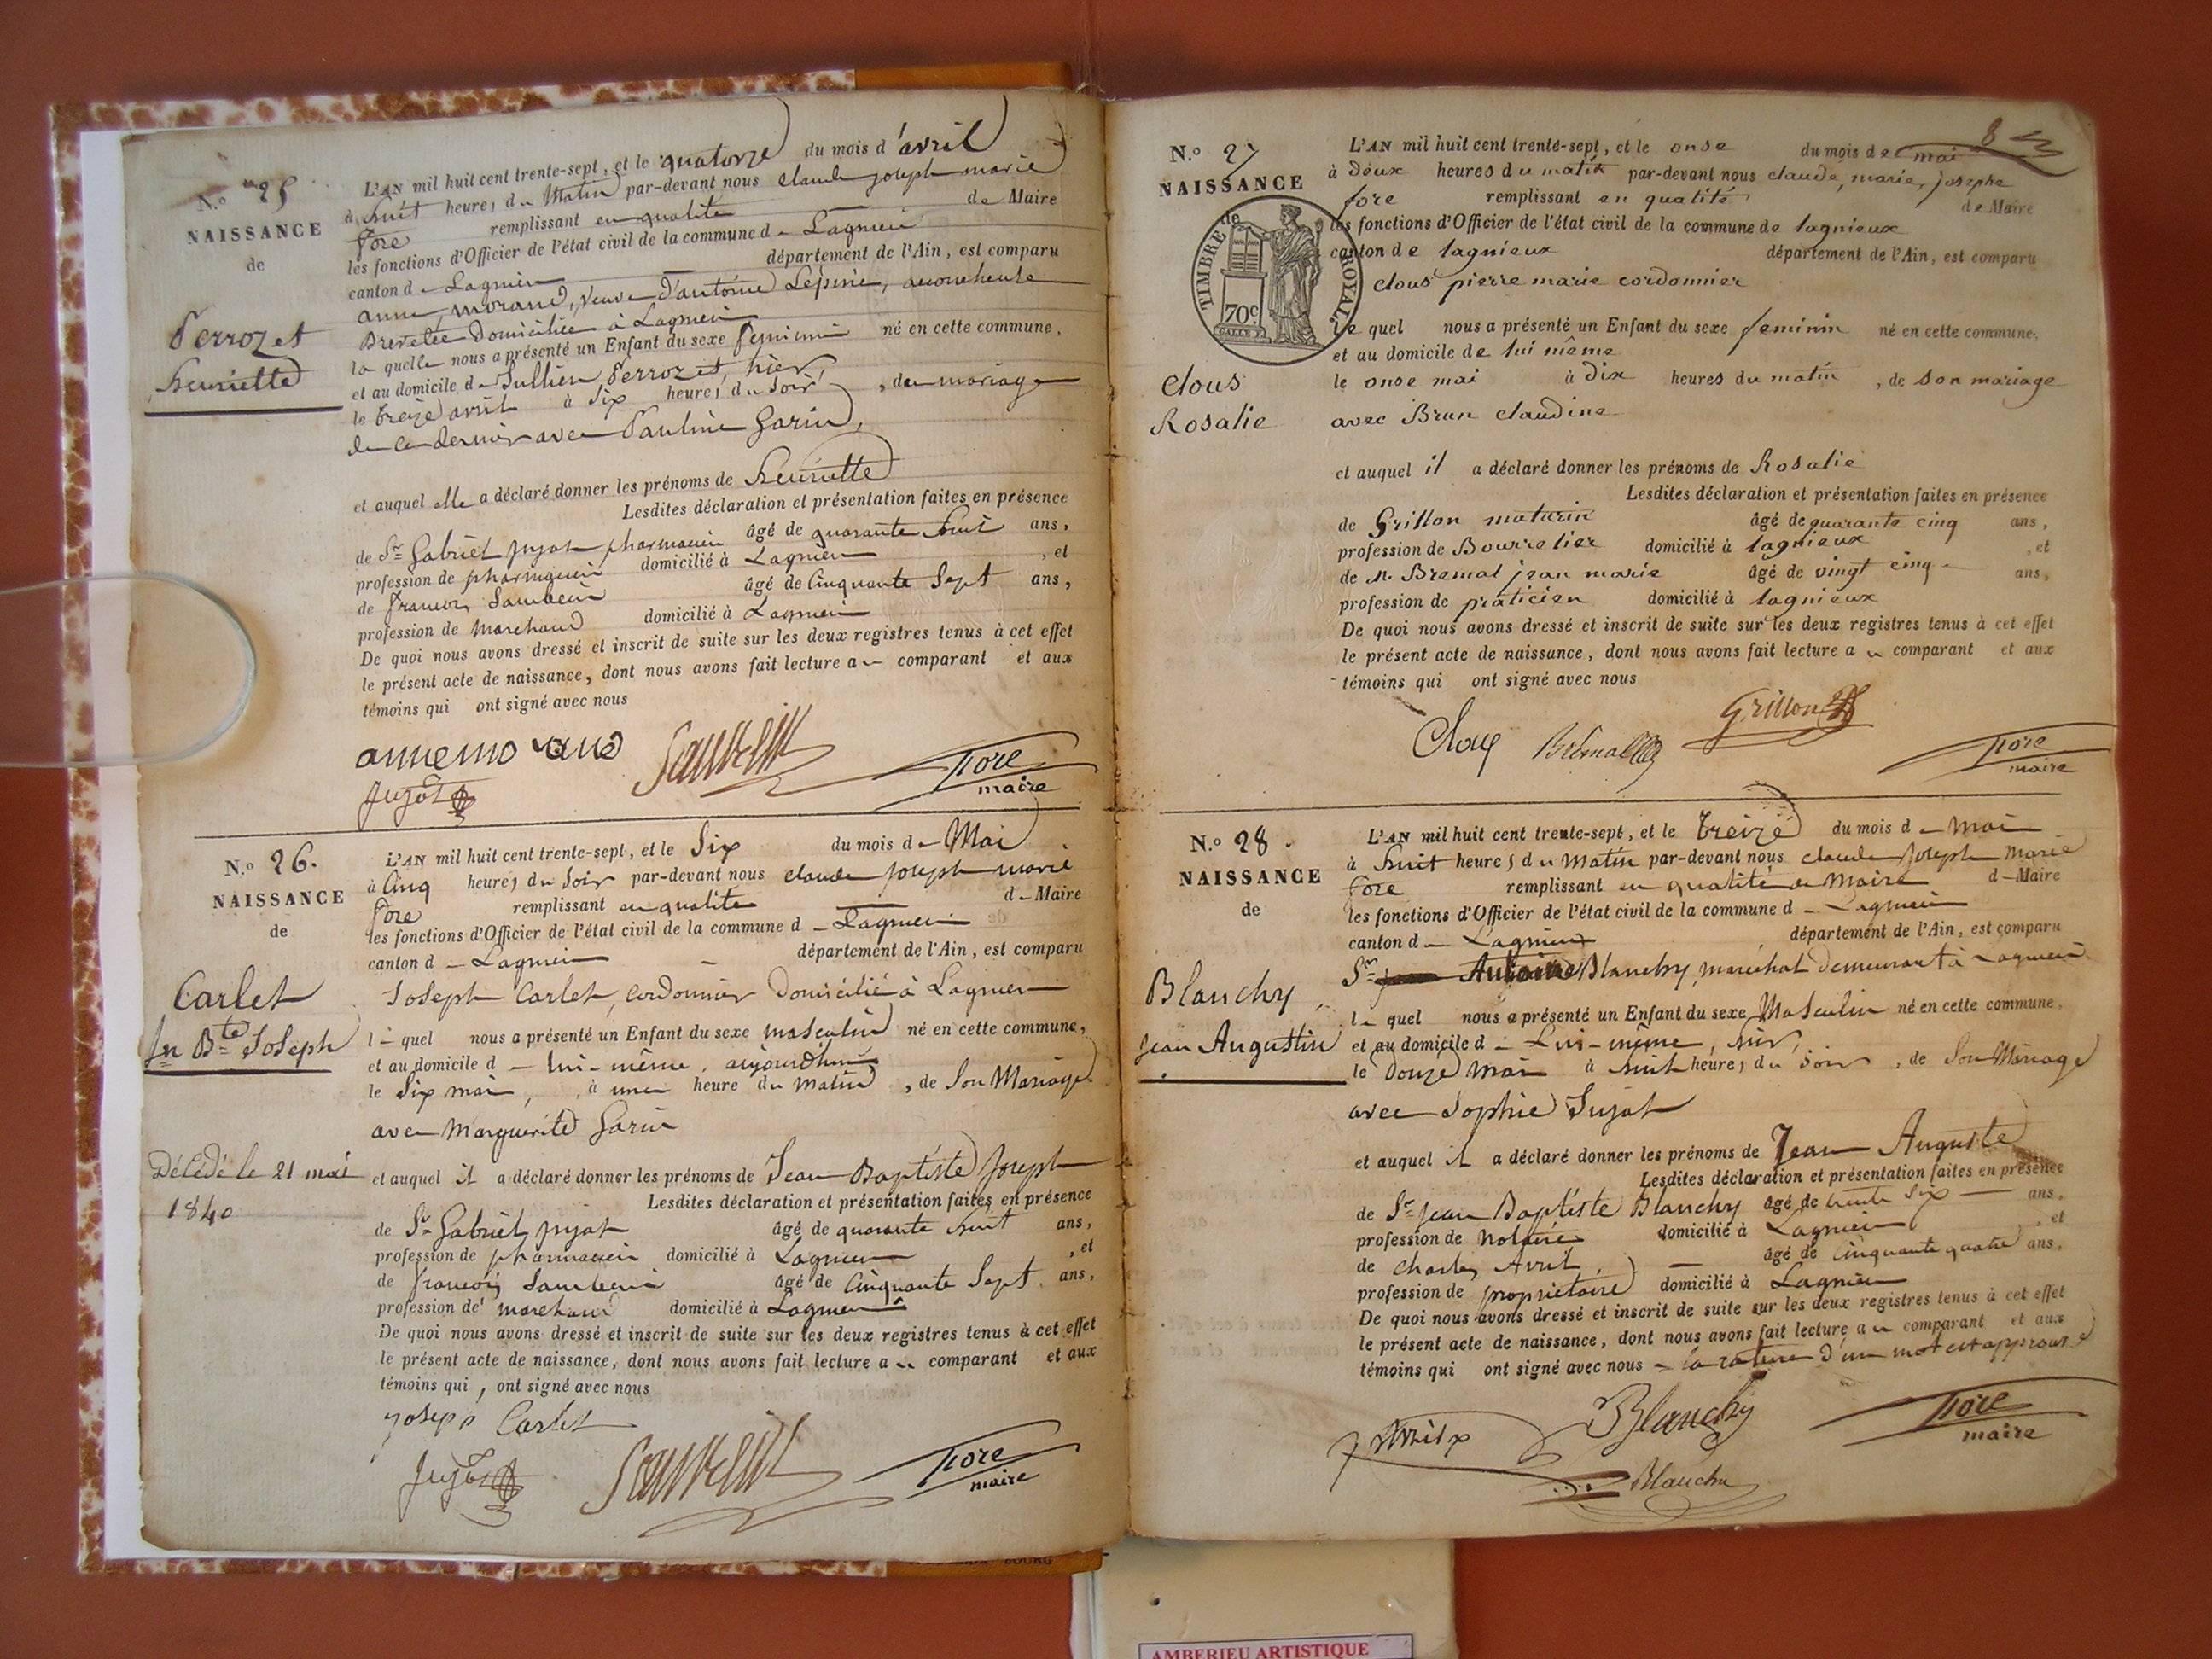 N.º 25
NAISSANCE
de
Perrozet
henriette
L'AN mil huit cent trente-sept, et le quatorze du mois d'avril
à huit heures du Matin par-devant nous claude joseph marie
fore remplissant en qualité de Maire
les fonctions d'Officier de l'état civil de la commune de Lagnieu
canton de Lagnieu département de l'Ain, est comparu
anne morand, veuve d'antoine Lépine, accoucheuse
Brevetée Domiciliée à Lagnieu
la quelle nous a présenté un Enfant du sexe feminin né en cette commune,
et au domicile de Jullien Perrozet, hier,
le treize avril à six heures du soir, du mariage
de ce dernier avec Pauline Garin,
et auquel elle a déclaré donner les prénoms de henriette
Lesdites déclaration et présentation faites en présence
de Sr Gabriel pujat pharmacien âgé de quarante huit ans,
profession de pharmacien domicilié à Lagnieu, et
de françois âgé de Cinquante Sept ans,
profession de marchand domicilié à Lagnieu
De quoi nous avons dressé et inscrit de suite sur les deux registres tenus à cet effet
le présent acte de naissance, dont nous avons fait lecture au comparant et aux
témoins qui ont signé avec nous
anne morand
fore
maire
N.º 26.
NAISSANCE
de
Carlet
Jn Bte Joseph
Décédé le 21 mai
1840
L'AN mil huit cent trente-sept, et le Six du mois de Mai
à Cinq heures du Soir par-devant nous claude joseph marie
fore remplissant en qualité de Maire
les fonctions d'Officier de l'état civil de la commune de Lagnieu
canton de Lagnieu département de l'Ain, est comparu
Joseph Carlet, cordonnier Domicilié à Lagnieu
le quel nous a présenté un Enfant du sexe masculin né en cette commune,
et au domicile de lui-même, aujourdhui
le Six mai, à une heure du Matin, de Son Mariage
avec Marguerite Garin
et auquel il a déclaré donner les prénoms de Jean Baptiste Joseph
Lesdites déclaration et présentation faites en présence
de Sr Gabriel pujat âgé de quarante huit ans,
profession de pharmacien domicilié à Lagnieu, et
de françois âgé de Cinquante Sept ans,
profession de marchand domicilié à Lagnieu
De quoi nous avons dressé et inscrit de suite sur les deux registres tenus à cet effet
le présent acte de naissance, dont nous avons fait lecture au comparant et aux
témoins qui, ont signé avec nous
joseph Carlet
fore
maire
8
N.º 27
NAISSANCE
de
TIMBRE ROYAL
70c
clous
Rosalie
L'AN mil huit cent trente-sept, et le onse du mois de mai
à deux heures du matin par-devant nous claude, marie, josephe
fore remplissant en qualité de Maire
les fonctions d'Officier de l'état civil de la commune de lagnieux
canton de lagnieux département de l'Ain, est comparu
clous pierre marie cordonnier
le quel nous a présenté un Enfant du sexe feminin né en cette commune,
et au domicile de lui même
le onse mai à dix heures du matin, de son mariage
avec Brun claudine
et auquel il a déclaré donner les prénoms de Rosalie
Lesdites déclaration et présentation faites en présence
de Grillon maturin âgé de quarante cinq ans,
profession de Bourrelier domicilié à lagnieux, et
de M. Bremal jean marie âgé de vingt cinq ans,
profession de praticien domicilié à lagnieux
De quoi nous avons dressé et inscrit de suite sur les deux registres tenus à cet effet
le présent acte de naissance, dont nous avons fait lecture au comparant et aux
témoins qui ont signé avec nous
Grillon
fore
maire
N.º 28.
NAISSANCE
de
Blanchy
jean Augustin
L'AN mil huit cent trente-sept, et le treize du mois de mai
à huit heures du Matin par-devant nous claude joseph Marie
fore remplissant en qualité de Maire de Maire
les fonctions d'Officier de l'état civil de la commune de Lagnieu
canton de Lagnieu département de l'Ain, est comparu
Sr Antoine Blanchy, maréchal demeurant à Lagnieu
le quel nous a présenté un Enfant du sexe Masculin né en cette commune,
et au domicile de Lui-même, hier,
le douze mai à huit heures du soir, de Son Mariage
avec Sophie Sujat
et auquel il a déclaré donner les prénoms de Jean Auguste
Lesdites déclaration et présentation faites en présence
de Sr jean Baptiste Blanchy âgé de trente Six ans,
profession de Notaire domicilié à Lagnieu, et
de Charles Avril, âgé de Cinquante quatre ans,
profession de propriétaire domicilié à Lagnieu
De quoi nous avons dressé et inscrit de suite sur les deux registres tenus à cet effet
le présent acte de naissance, dont nous avons fait lecture au comparant et aux
témoins qui ont signé avec nous la rature d'un mot est approuvé
Blanchy
fore
maire
Blanchy
BOURG
AMBERIEU ARTISTIQUE